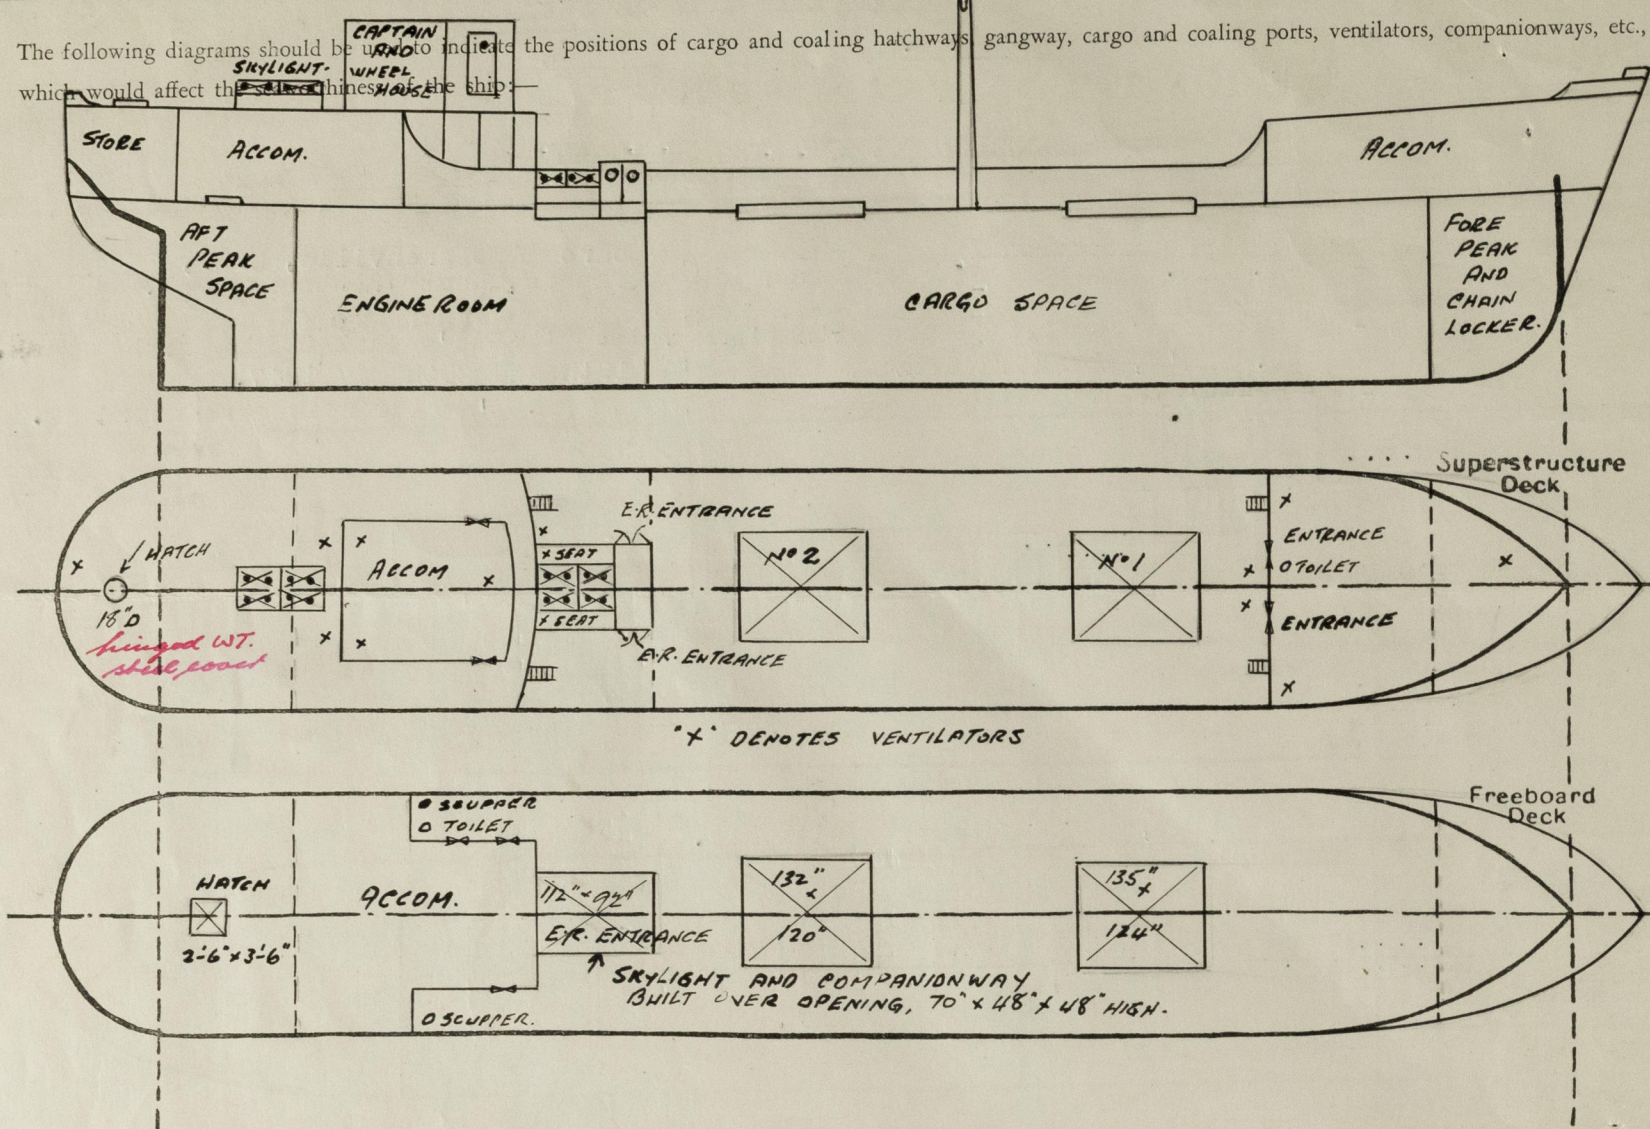 The following diagrams should be used to indicate the positions of cargo and coaling hatchways, gangway, cargo and coaling ports, ventilators, companionways, etc.,
which would affect the seaworthiness of the ship:—
CAPTAIN
AND
WHEEL
HOUSE
SKYLIGHT.
STORE
ACCOM.
ACCOM.
AFT
PEAK
SPACE
ENGINE ROOM
CARGO SPACE
FORE
PEAK
AND
CHAIN
LOCKER.
Superstructure
Deck
HATCH
18"D
hinged WT.
steel cover
ACCOM
E.R. ENTRANCE
X SEAT
X SEAT
E.R. ENTRANCE
No 2
No 1
ENTRANCE
O TOILET
ENTRANCE
"X" DENOTES VENTILATORS
Freeboard
Deck
SCUPPER
O TOILET
HATCH
2'-6" x 3'-6"
ACCOM.
112" x 92"
E.R. ENTRANCE
132"
x
120"
135"
x
124"
SKYLIGHT AND COMPANIONWAY
BUILT OVER OPENING, 70" x 48" x 48" HIGH.
O SCUPPER.